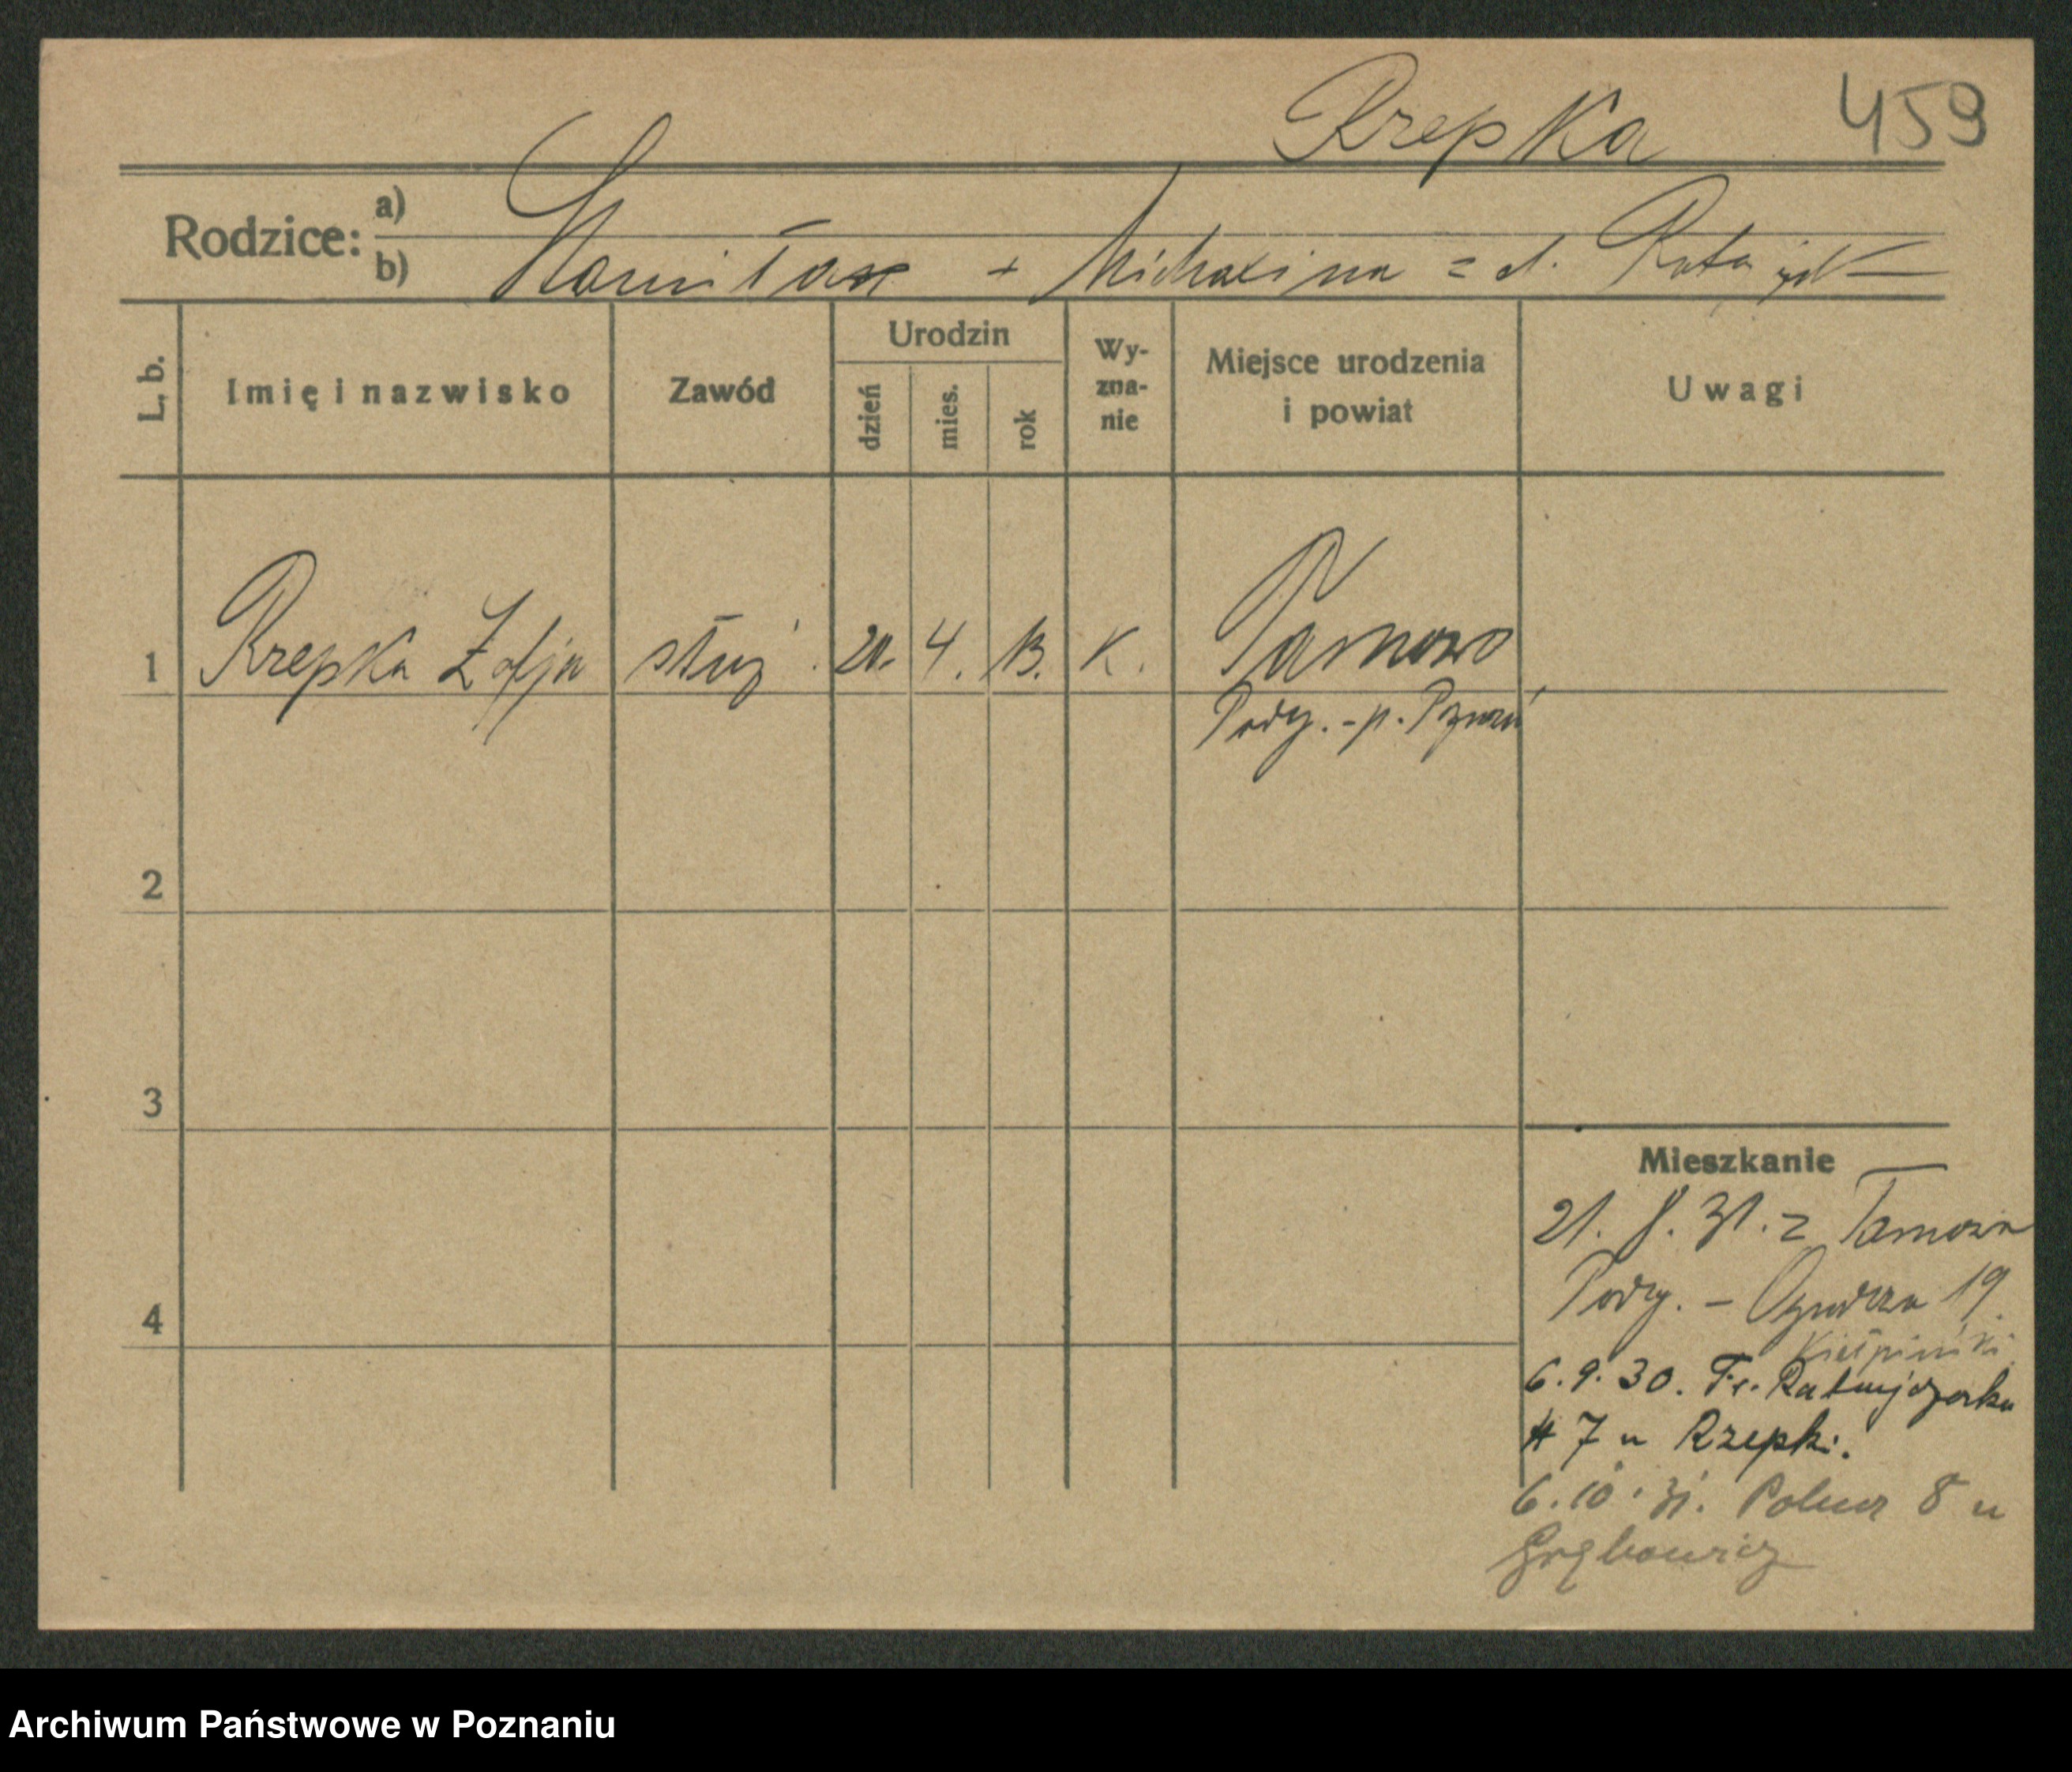 Rzepka 459
Rodzice: a)
b) Stanisław + Michalina = d. Rataj
L. b. Imię i nazwisko Zawód Urodzin dzień mies. rok Wy-zna-nie Miejsce urodzenia i powiat Uwagi
1 Rzepka Zofja służ. 4. 13. K. Tarnowo
Podg. - p. Poznań
2
3
Mieszkanie
21. 8. 31. z Tarnowa
4
Podg. - Ogrodowa 19
6.9.30. Fr. Ratajczaka
7 u Rzepki.
6.10.31. Polna 8 u
Archiwum Państwowe w Poznaniu